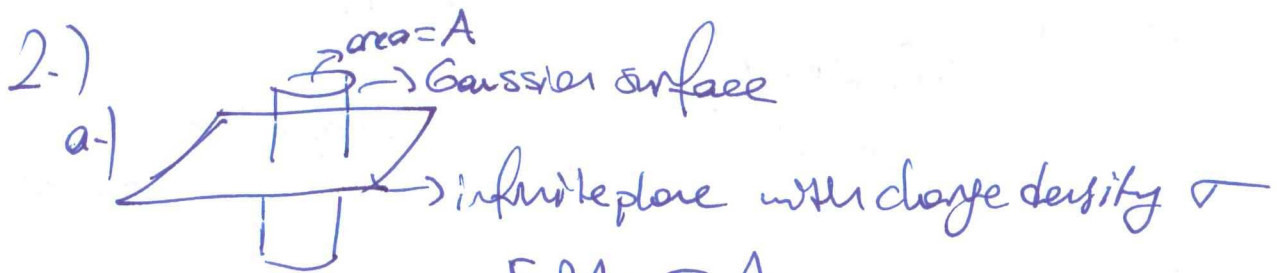 2-)
area = A
→ Gaussian surface
a-)
→ infinite plane with charge density σ